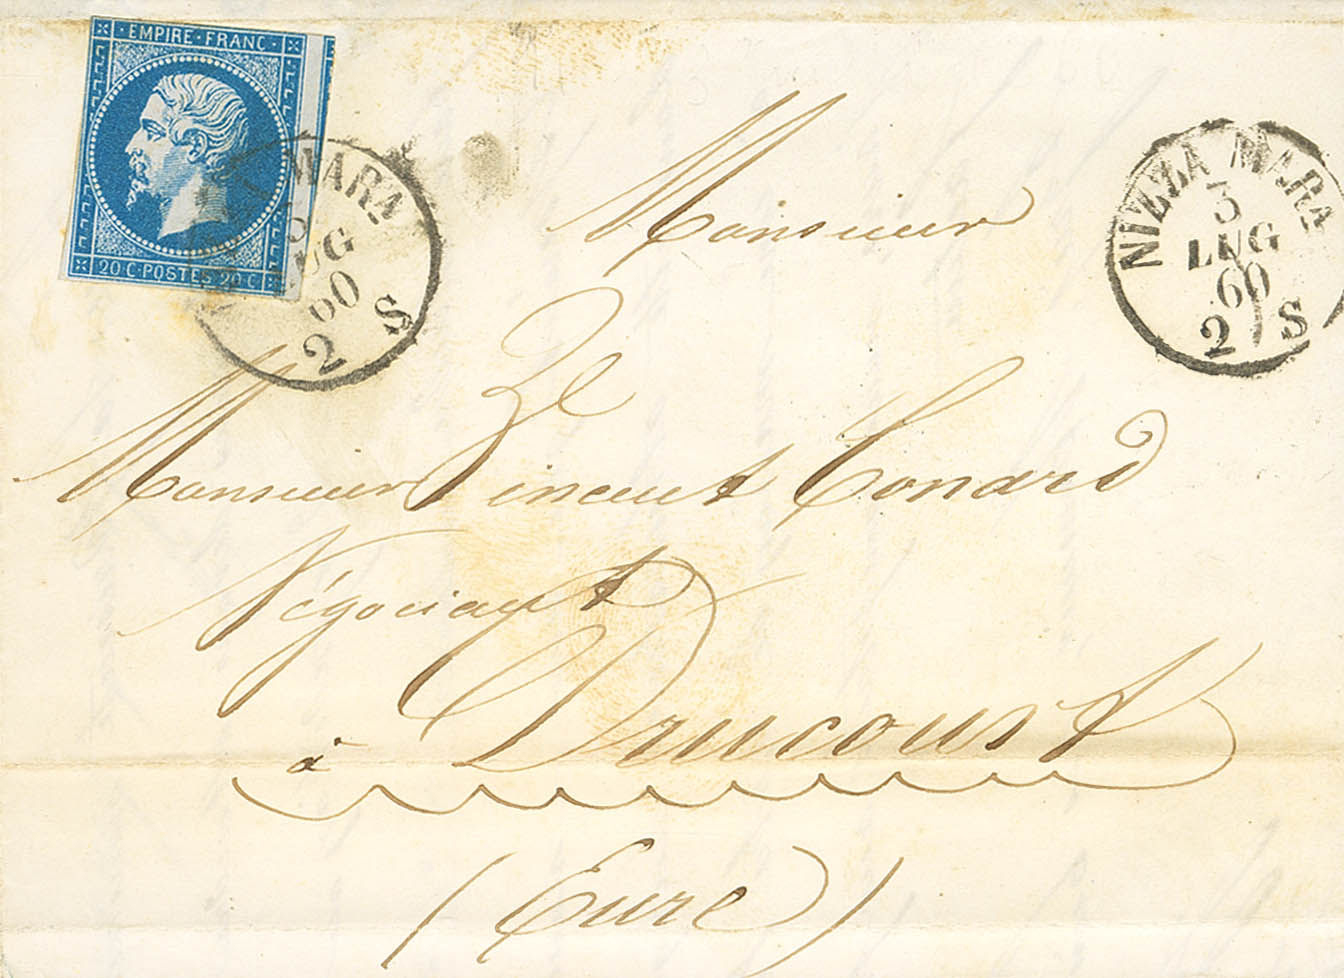 EMPIRE FRANC.
20 C. POSTES 20 C.
MARA
LUG
60
2 S
NIZZA MARA
3
LUG
60
2 S
Monsieur
Monsieur Vincent Conard
Négociant
à Drucourt
(Eure)